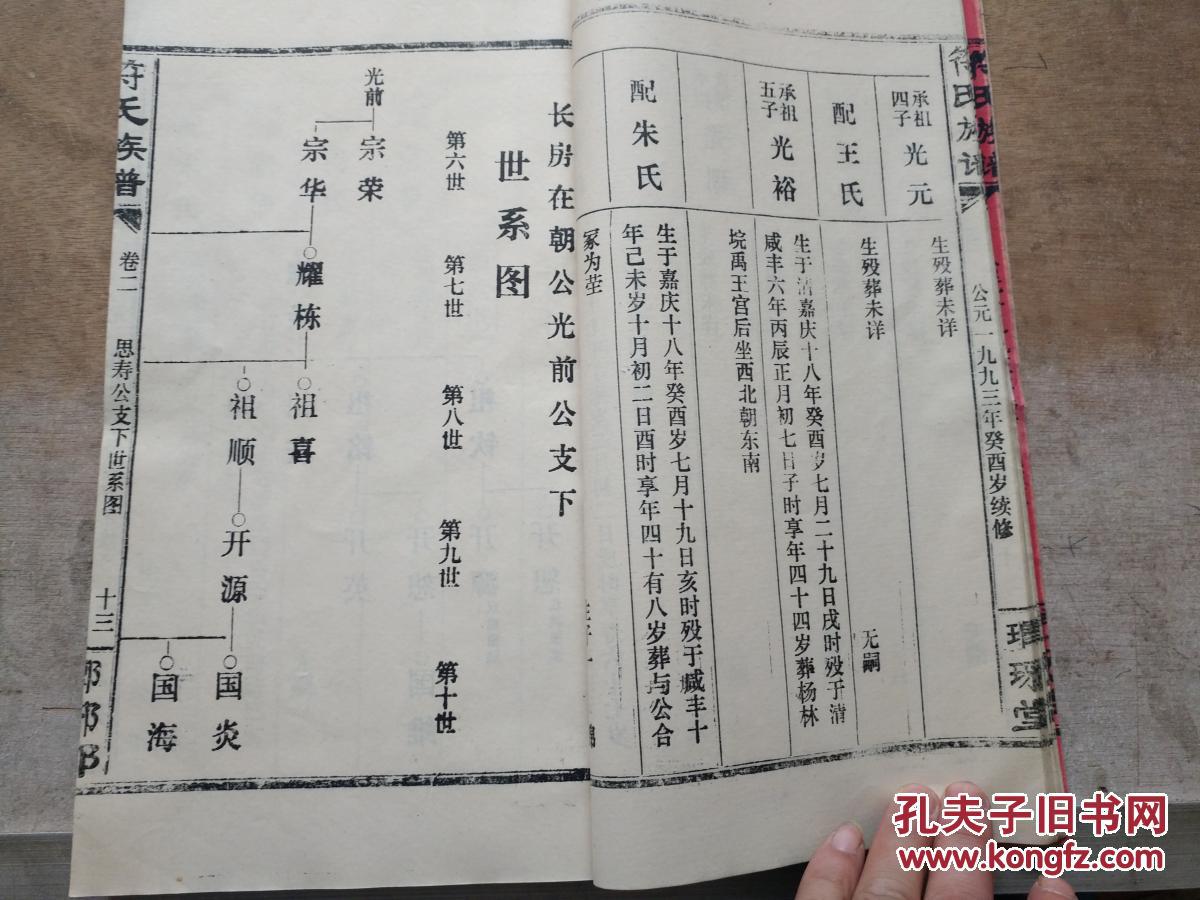 符氏族谱
公元一九九三年癸酉岁续修
琅玡堂
承祖四子 光元
生殁葬未详
配王氏
生殁葬未详
无嗣
承祖五子 光裕
生于清嘉庆十八年癸酉岁七月二十九日戌时殁于清
咸丰六年丙辰正月初七日子时享年四十四岁葬杨林
垸禹王宫后坐西北朝东南
配朱氏
生于嘉庆十八年癸酉岁七月十九日亥时殁于咸丰十
年己未岁十月初二日酉时享年四十有八岁葬与公合
冢为茔
长房在朝公光前公支下
世系图
第六世
第七世
第八世
第九世
第十世
光前
宗荣
宗华
耀栋
祖喜
祖顺
开源
国炎
国海
符氏族普
卷二
思寿公支下世系图
十三
孔夫子旧书网
www.kongfz.com